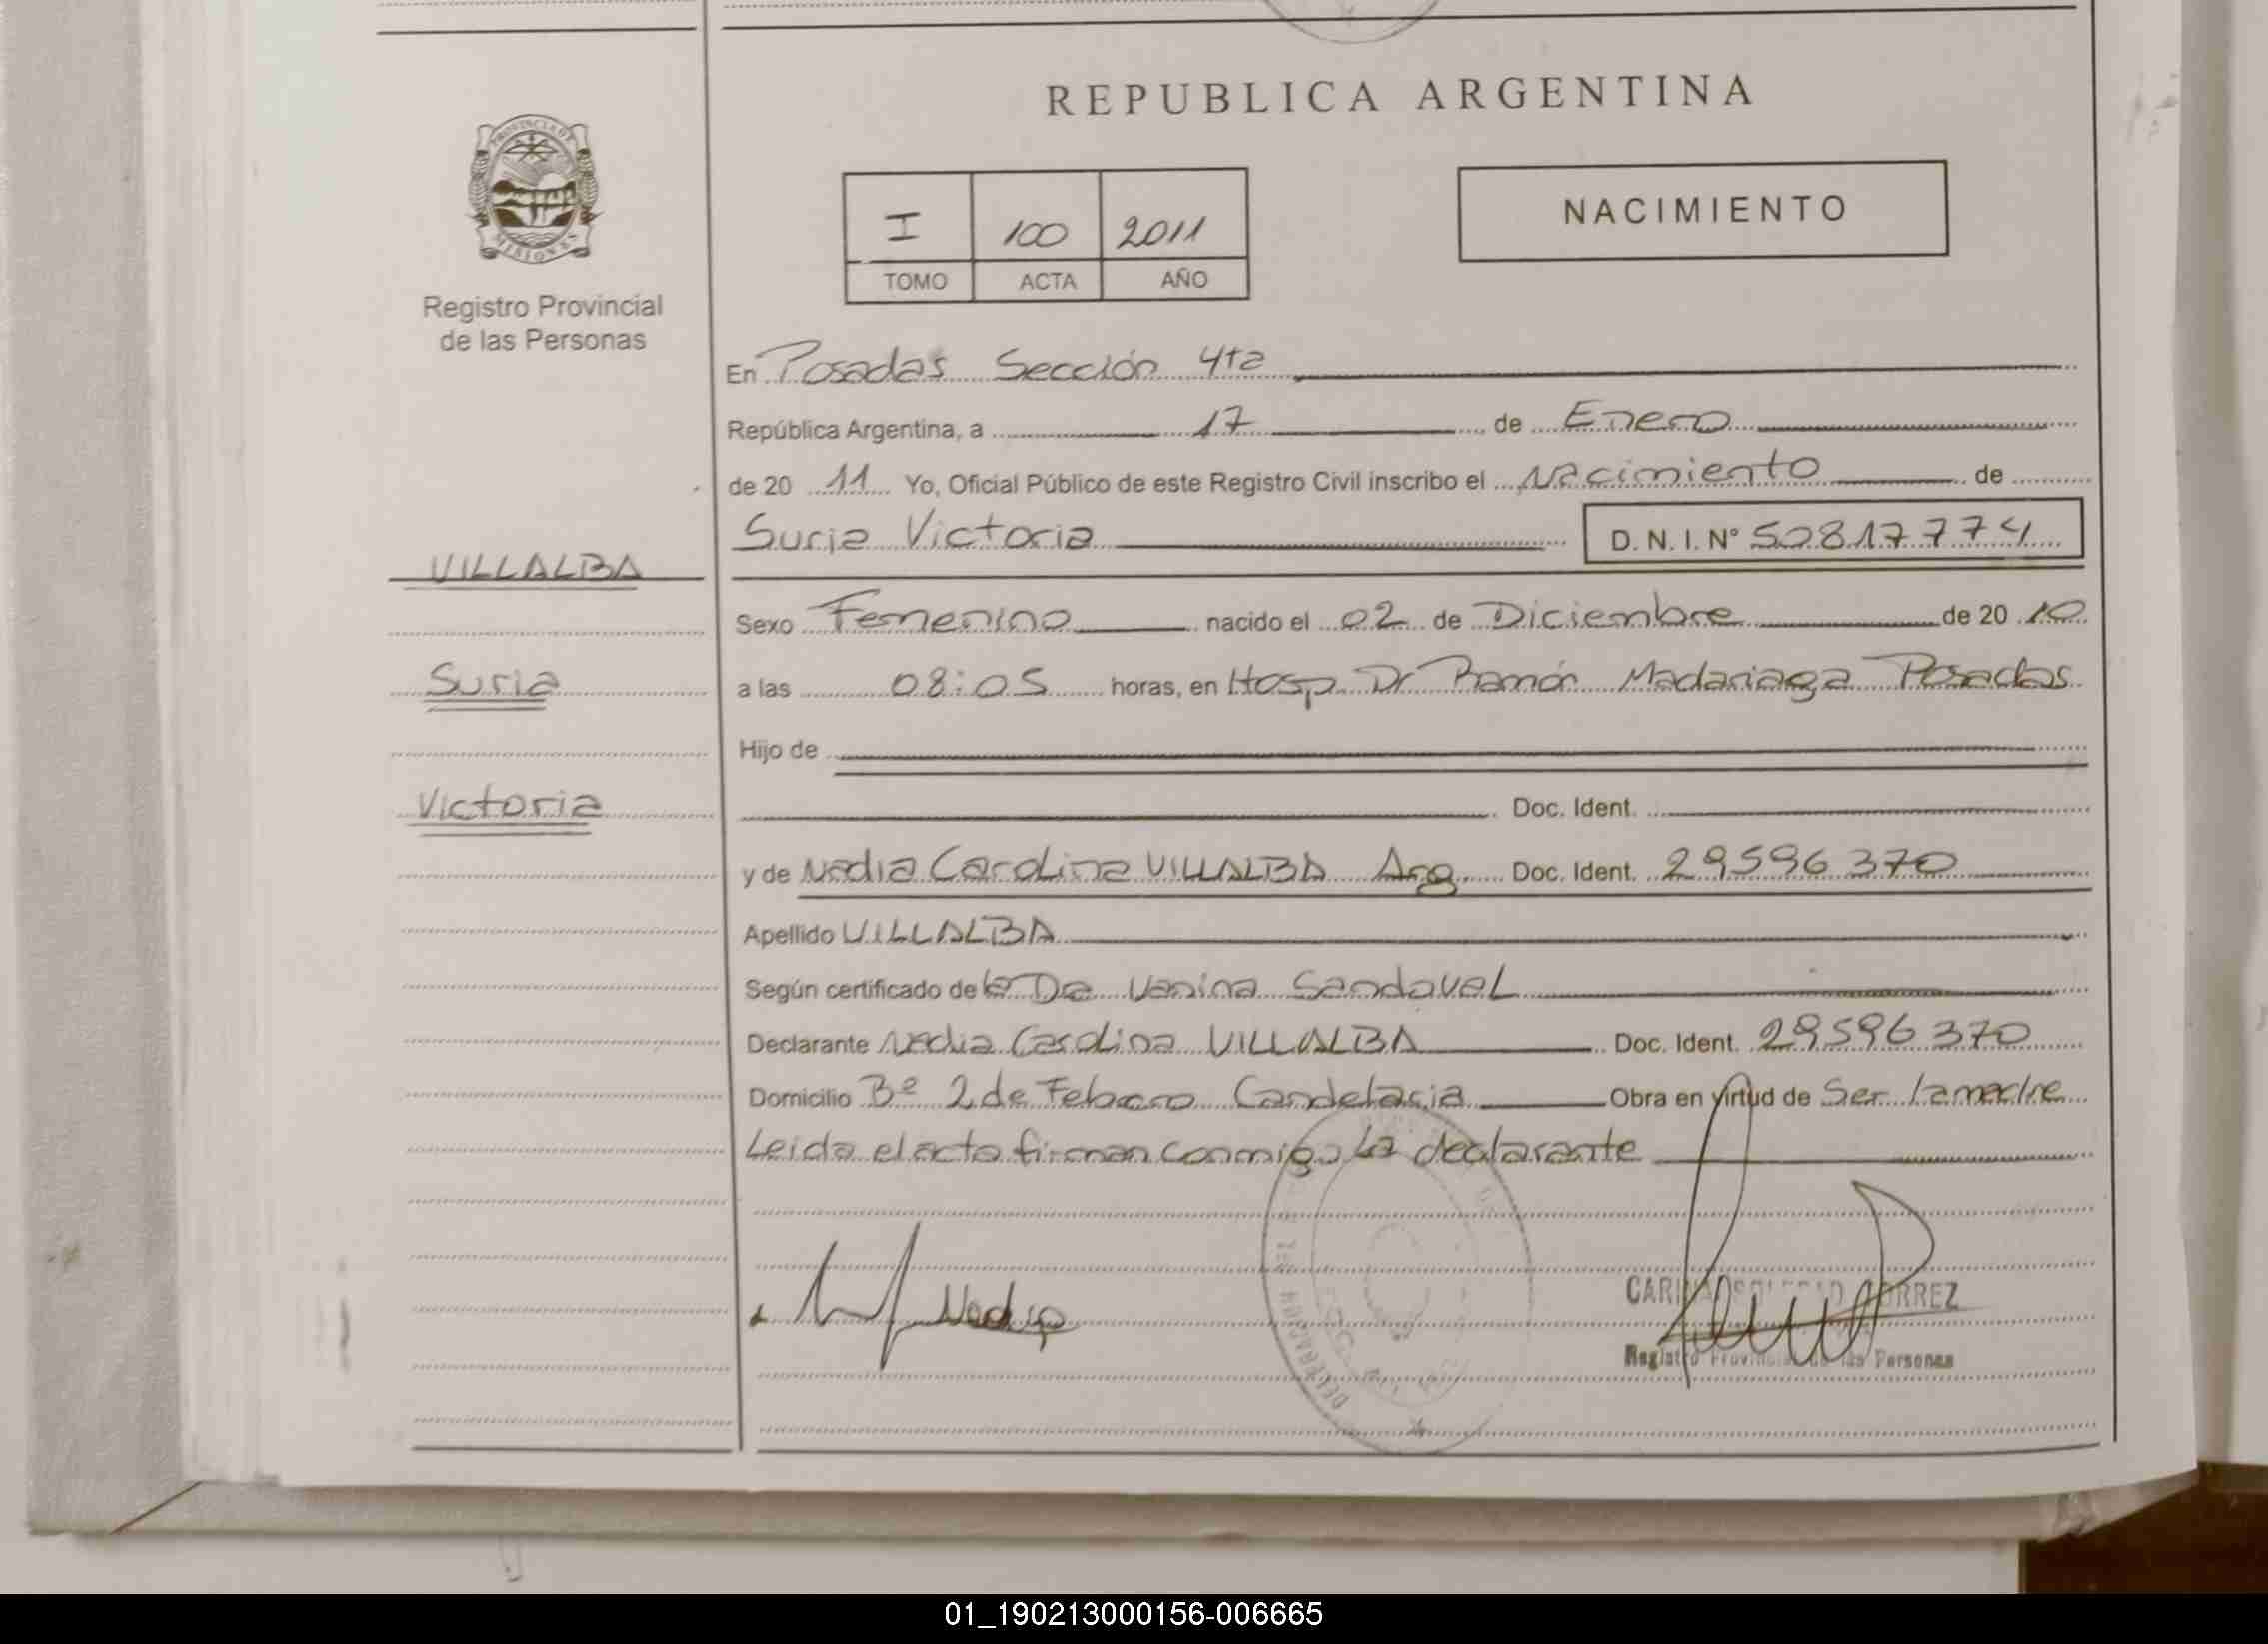 REPUBLICA ARGENTINA
PROVINCIA DE
MISIONES
Registro Provincial
de las Personas
I 100 2011
TOMO ACTA AÑO
NACIMIENTO
En Posadas Sección 4ta
República Argentina, a 17 de Enero
de 20 11 Yo, Oficial Público de este Registro Civil inscribo el Nacimiento de
Suria Victoria D. N. I. Nº 50817774
VILLALBA
Sexo Femenino nacido el 02 de Diciembre de 20 10
Suria
a las 08:05 horas, en Hosp. Dr Ramón Madariaga Posadas
Hijo de
Victoria
Doc. Ident.
y de Nadia Carolina VILLALBA Arg. Doc. Ident. 29596370
Apellido VILLALBA
Según certificado de la Dra Vanina Sandoval
Declarante Nadia Carolina VILLALBA Doc. Ident. 29596370
Domicilio Bº 2 de Febrero Candelaria Obra en virtud de Ser la madre
Leida el acta firman conmigo la declarante
Nadia
Registro Provincial de las Personas
01_190213000156-006665